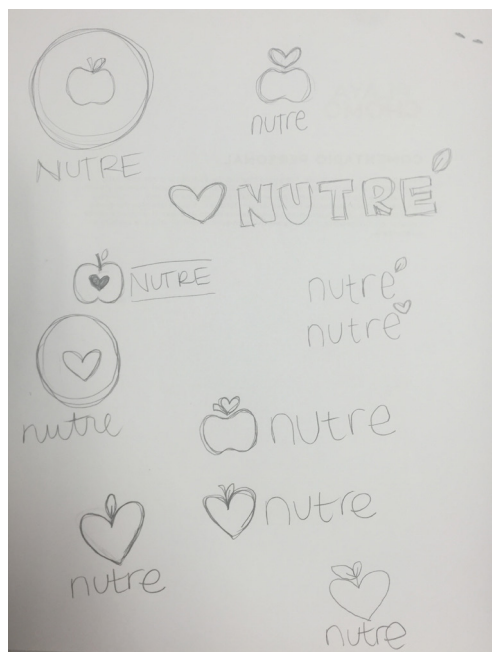 NUTRE
nutre
NUTRE
NUTRE
nutre
nutre
nutre
nutre
nutre
nutre
nutre